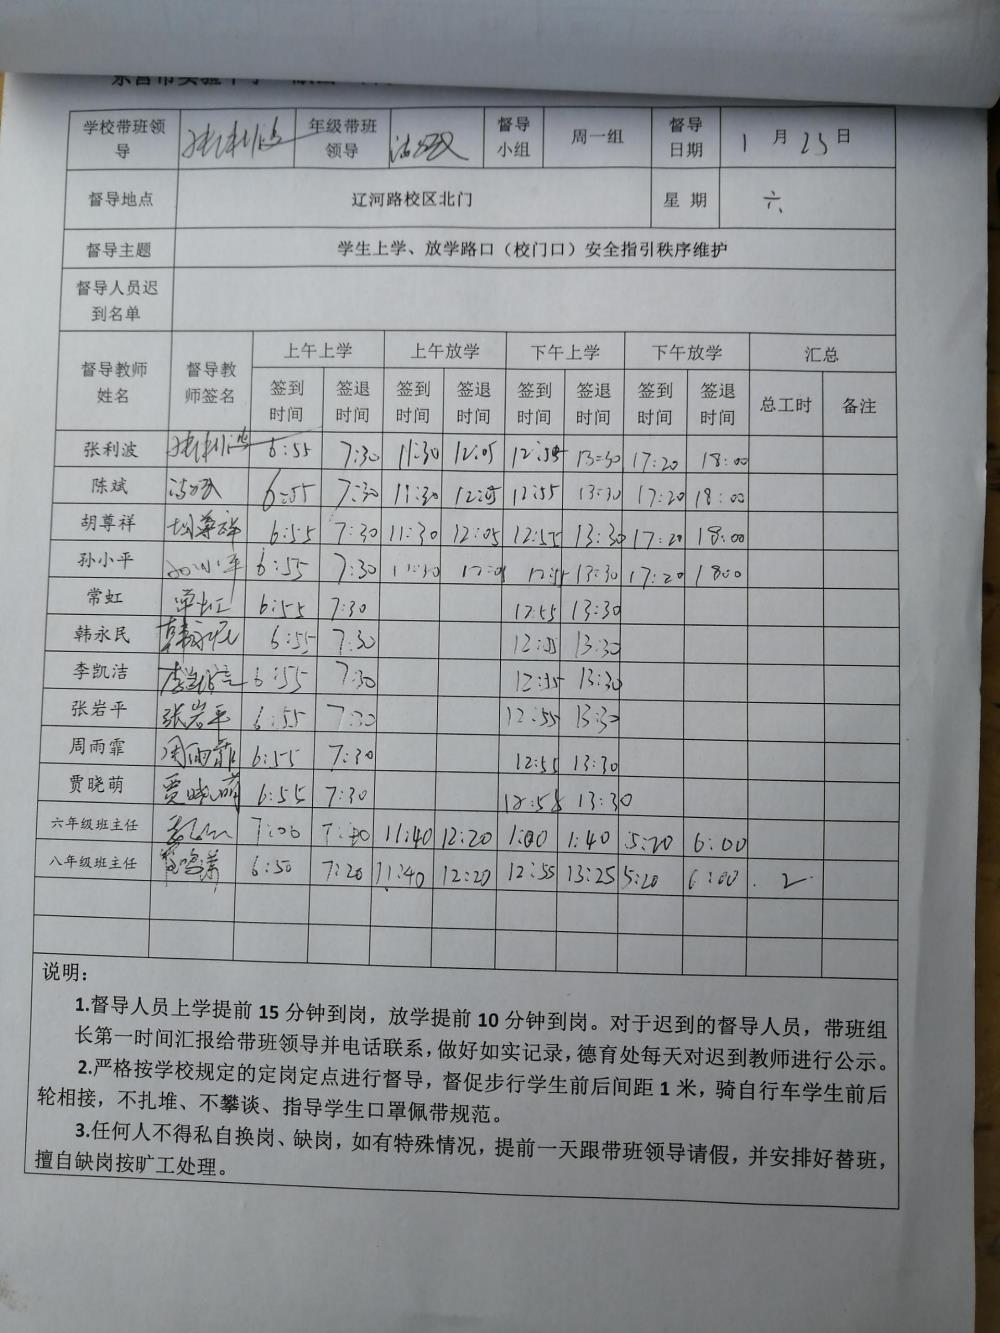 学校带班领导 张利波 年级带班领导 督导小组 周一组 督导日期 1月23日
督导地点 辽河路校区北门 星 期 六
督导主题 学生上学、放学路口（校门口）安全指引秩序维护
督导人员迟到名单
督导教师姓名 督导教师签名 上午上学 上午放学 下午上学 下午放学 汇总
签到时间 签退时间 签到时间 签退时间 签到时间 签退时间 签到时间 签退时间 总工时 备注
张利波 张利波 6:55 7:30 11:30 12:05 12:55 13:30 17:20 18:00
陈斌 6:55 7:30 11:30 12:05 12:55 13:30 17:20 18:00
胡尊祥 胡尊祥 6:55 7:30 11:30 12:05 12:55 13:30 17:20 18:00
孙小平 孙小平 6:55 7:30 11:30 12:05 12:55 13:30 17:20 18:00
常虹 常虹 6:55 7:30 12:55 13:30
韩永民 韩永民 6:55 7:30 12:55 13:30
李凯洁 李凯洁 6:55 7:30 12:55 13:30
张岩平 张岩平 6:55 7:30 12:55 13:30
周雨霏 周雨霏 6:55 7:30 12:55 13:30
贾晓萌 贾晓萌 6:55 7:30 12:55 13:30
六年级班主任 7:00 7:40 11:40 12:20 1:00 1:40 5:20 6:00
八年级班主任 6:50 7:20 11:40 12:20 12:55 13:25 5:20 6:00 2
说明：
1.督导人员上学提前 15 分钟到岗，放学提前 10 分钟到岗。对于迟到的督导人员，带班组
长第一时间汇报给带班领导并电话联系，做好如实记录，德育处每天对迟到教师进行公示。
2.严格按学校规定的定岗定点进行督导，督促步行学生前后间距 1 米，骑自行车学生前后
轮相接，不扎堆、不攀谈、指导学生口罩佩带规范。
3.任何人不得私自换岗、缺岗，如有特殊情况，提前一天跟带班领导请假，并安排好替班，
擅自缺岗按旷工处理。